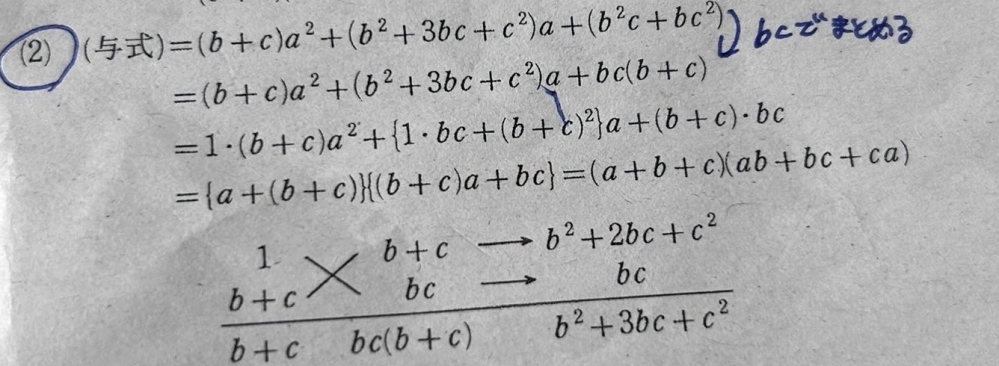 (2) (与式)=(b+c)a²+(b²+3bc+c²)a+(b²c+bc²) bcでまとめる
=(b+c)a²+(b²+3bc+c²)a+bc(b+c)
=1·(b+c)a²+{1·bc+(b+c)²}a+(b+c)·bc
={a+(b+c)}{(b+c)a+bc}=(a+b+c)(ab+bc+ca)
1 b+c → b²+2bc+c²
b+c bc → bc
b+c bc(b+c) b²+3bc+c²